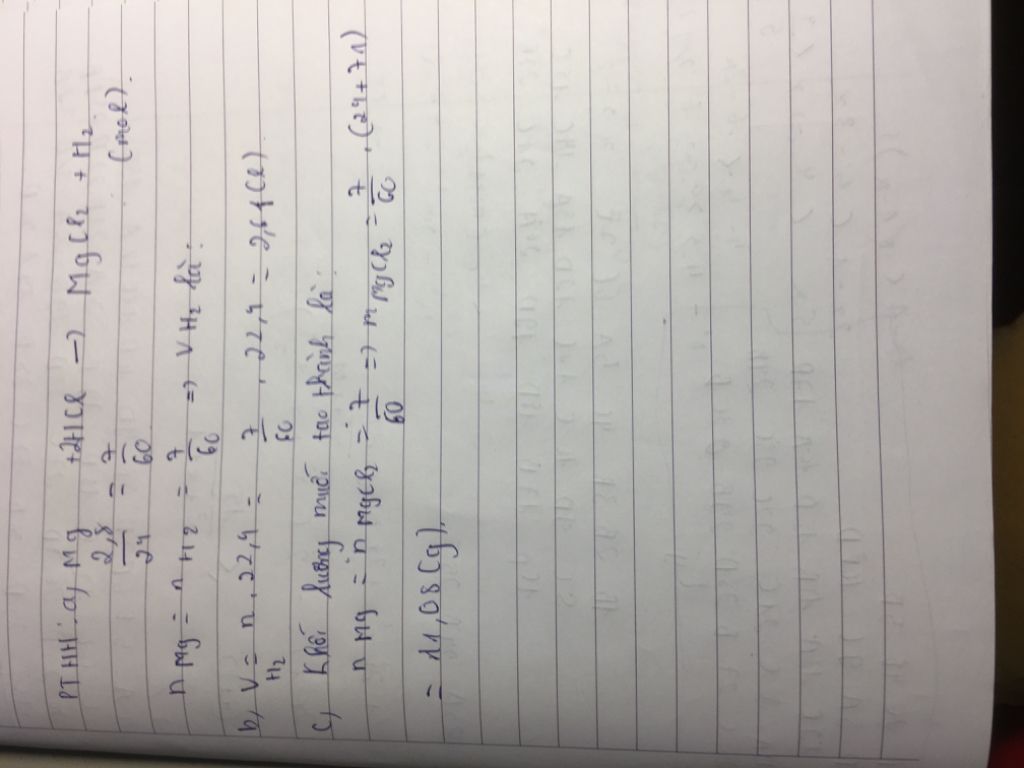 PTHH: a, Mg + 2HCl → MgCl2 + H2
2,8/24 = 7/60 (mol).
n Mg = n H2 = 7/60 => V H2 là:
b, V H2 = n . 22,4 = 7/60 . 22,4 = 2,61 (l)
c, Khối lượng muối tạo thành là:
n Mg = n MgCl2 = 7/60 => m MgCl2 = 7/60 . (24+71)
= 11,08 (g).